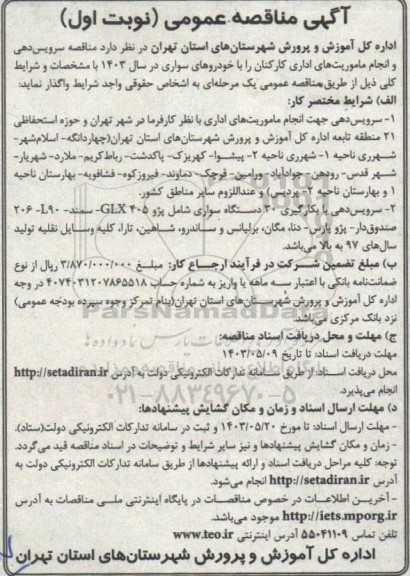 آگهی مناقصه عمومی (نوبت اول)
اداره کل آموزش و پرورش شهرستان‌های استان تهران در نظر دارد مناقصه سرویس‌دهی
و انجام ماموریت‌های اداری کارکنان را با خودروهای سواری در سال ۱۴۰۳ با مشخصات و شرایط
کلی ذیل از طریق مناقصه عمومی یک مرحله‌ای به اشخاص حقوقی واجد شرایط واگذار نماید:
الف) شرایط مختصر کار:
۱- سرویس‌دهی جهت انجام ماموریت‌های اداری با نظر کارفرما در شهر تهران و حوزه استحفاظی
۲۱ منطقه تابعه اداره کل آموزش و پرورش شهرستان‌های استان تهران(چهاردانگه- اسلام‌شهر-
شهرری ناحیه ۱- شهرری ناحیه ۲- پیشوا- کهریزک- پاکدشت- رباط‌کریم- ملارد- شهریار-
شهر قدس- رودهن- جوادآباد- ورامین- قرچک- دماوند- فیروزکوه- فشافویه- بهارستان ناحیه
۱ و بهارستان ناحیه ۲- پردیس) و عنداللزوم سایر مناطق کشور.
۲- سرویس‌دهی با بکارگیری ۳۰ دستگاه سواری شامل پژو ۴۰۵ GLX- سمند- L۹۰- ۲۰۶
صندوق‌دار- پژو پارس- دنا، مگان، برلیانس و ساندرو، شاهین، تارا، کلیه وسایل نقلیه تولید
سال‌های ۹۷ به بالا می‌باشد.
ب) مبلغ تضمین شرکت در فرآیند ارجاع کار: مبلغ ۳/۸۷۰/۰۰۰/۰۰۰ ریال از نوع
ضمانت‌نامه بانکی با اعتبار سه ماهه یا واریز به شماره حساب ۴۰۷۴۰۳۱۲۰۷۸۶۵۵۱۸ در وجه
اداره کل آموزش و پرورش شهرستان‌های استان تهران(بنام تمرکز وجوه سپرده بودجه عمومی)
نزد بانک مرکزی می‌باشد.
ج) مهلت و محل دریافت اسناد مناقصه:
مهلت دریافت اسناد: تا تاریخ ۱۴۰۳/۰۵/۰۹
محل دریافت اسناد: از طریق سامانه تدارکات الکترونیکی دولت به آدرس http://setadiran.ir
انجام می‌پذیرد.
د) مهلت ارسال اسناد و زمان و مکان گشایش پیشنهادها:
- مهلت ارسال اسناد: تا مورخ ۱۴۰۳/۰۵/۲۰ و ثبت در سامانه تدارکات الکترونیکی دولت(ستاد).
- زمان و مکان گشایش پیشنهادها و نیز سایر شرایط و توضیحات در اسناد مناقصه قید می‌گردد.
توجه: کلیه مراحل دریافت اسناد و ارائه پیشنهادها از طریق سامانه تدارکات الکترونیکی دولت به
آدرس http://setadiran.ir انجام می‌شود.
- آخرین اطلاعات در خصوص مناقصات در پایگاه اینترنتی ملی مناقصات به آدرس
http://iets.mporg.ir موجود می‌باشد.
تلفن تماس ۵۵۰۴۱۱۰۹ آدرس اینترنتی www.teo.ir
اداره کل آموزش و پرورش شهرستان‌های استان تهران
ParsNamadData
۰۲۱-۸۸۳۴۹۶۷۰-۵